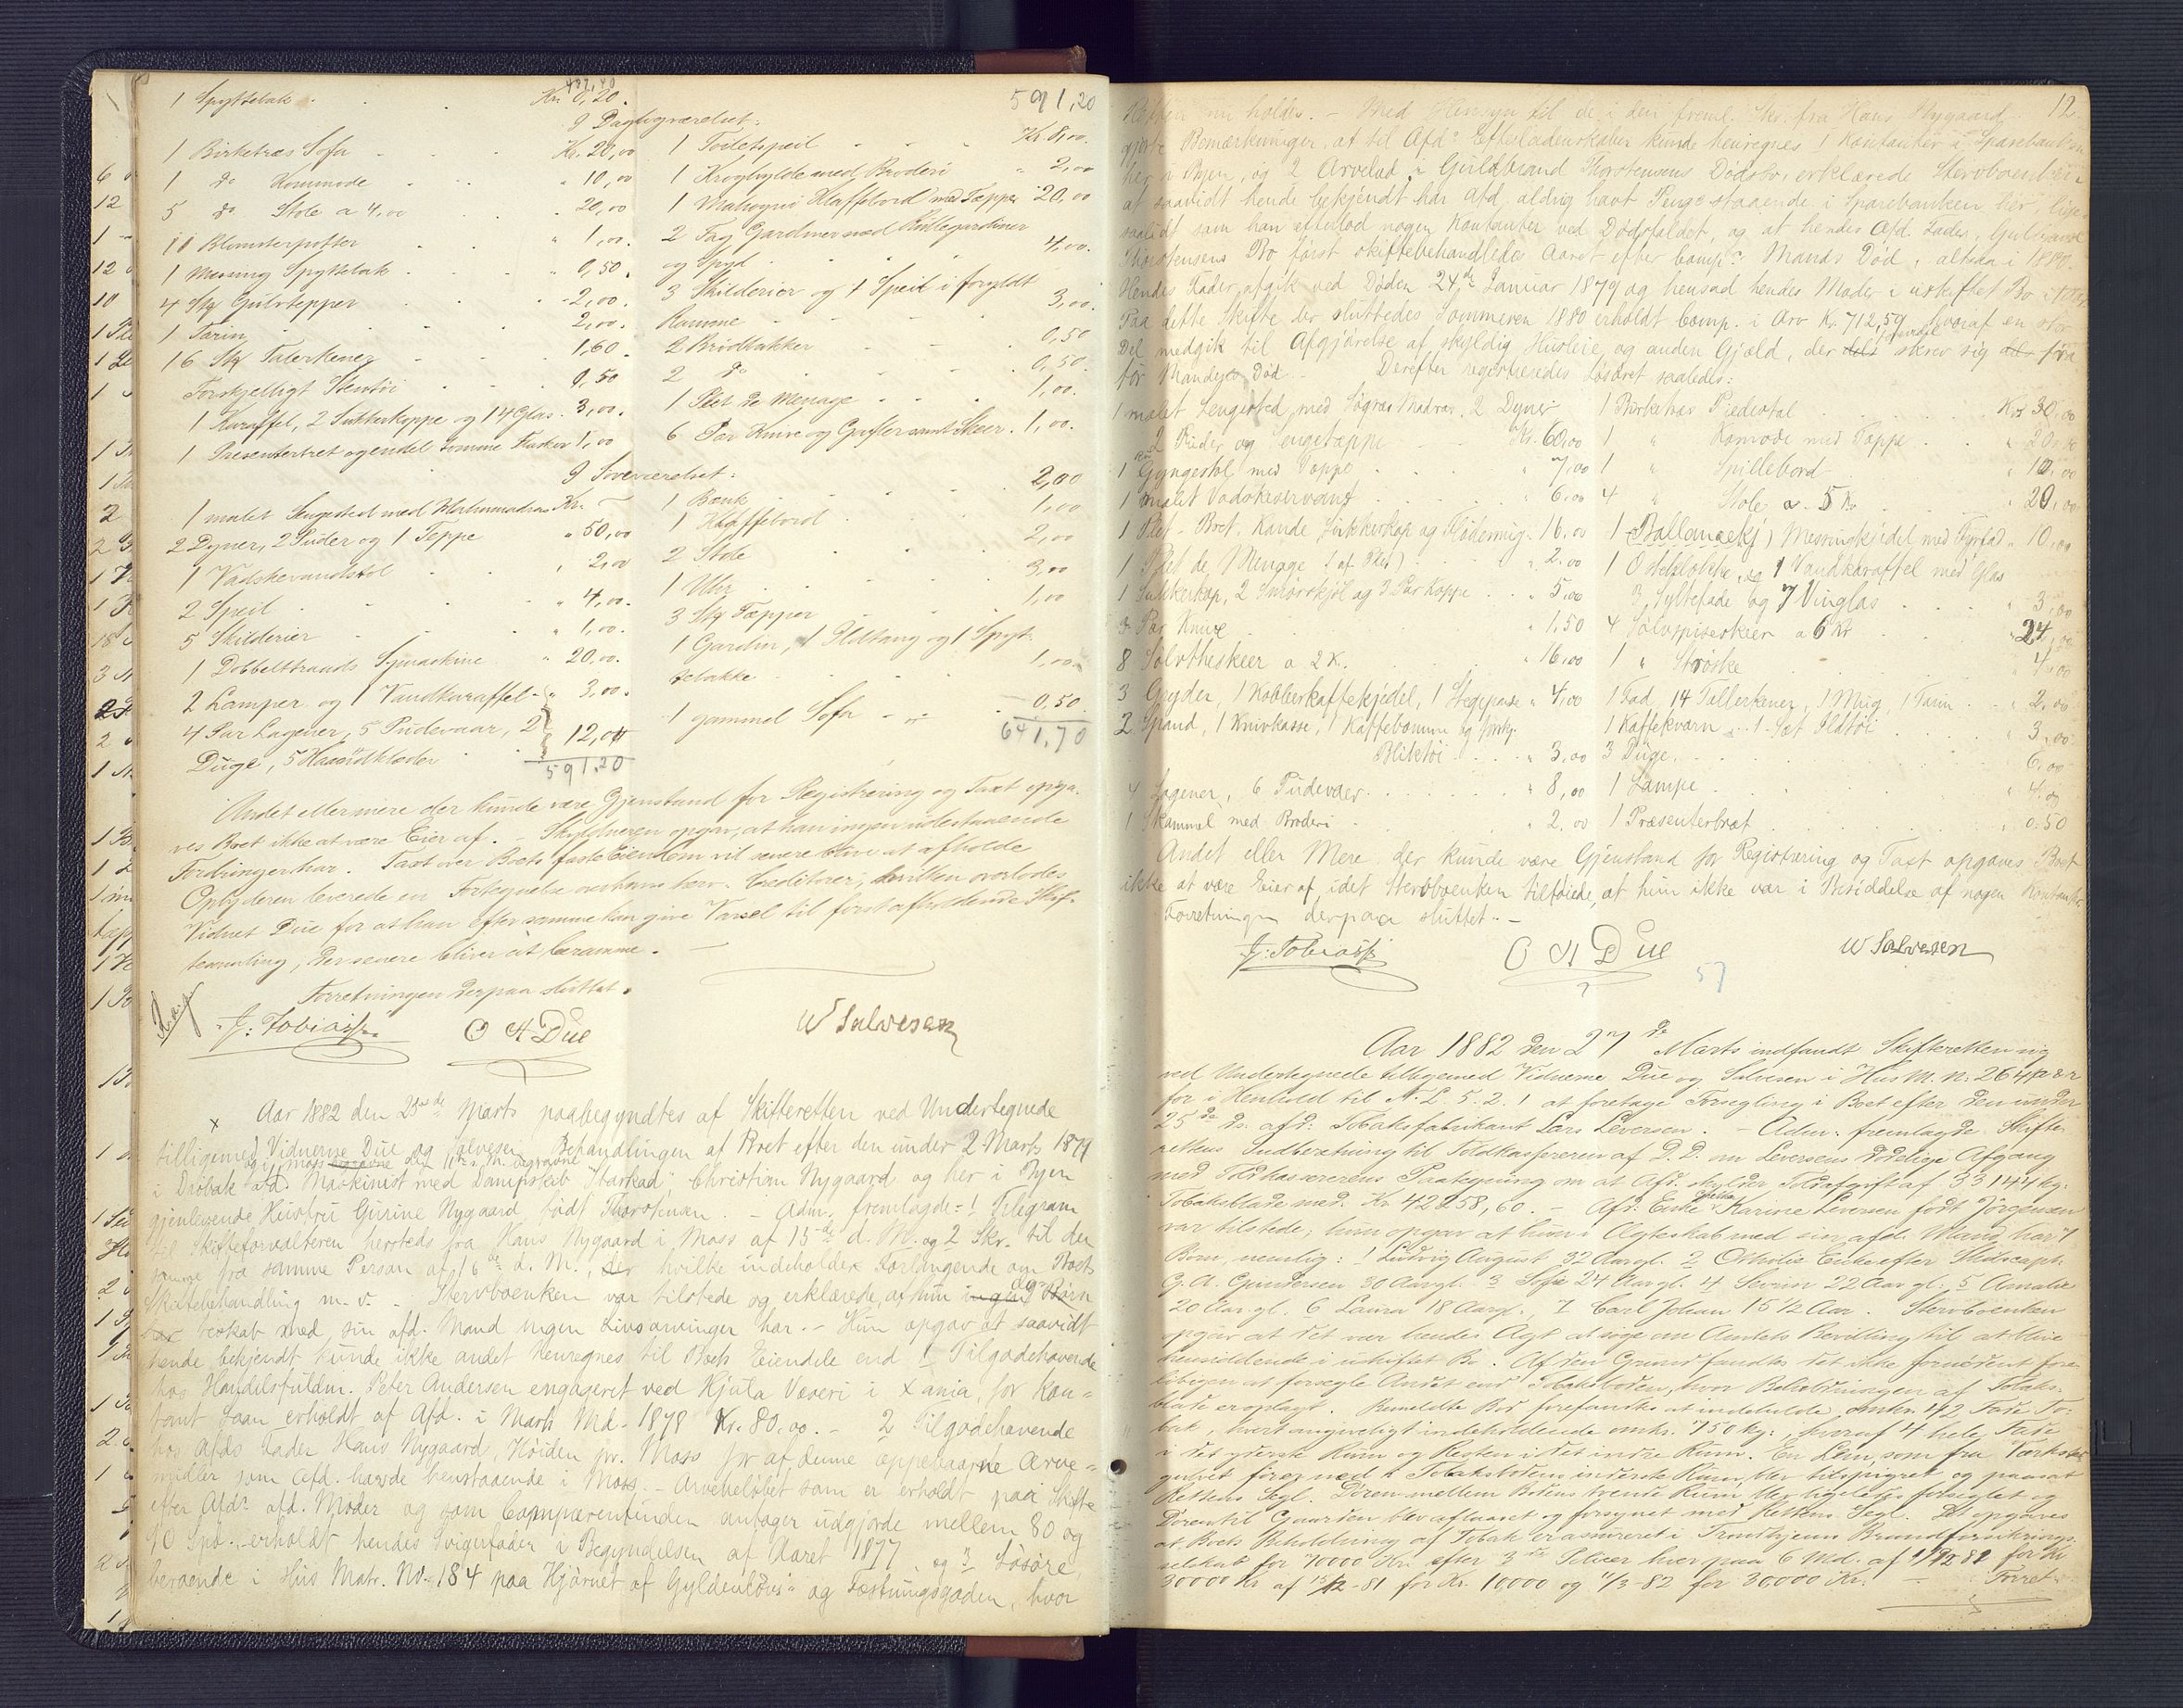 487,40
1 Spyttebak Kr. 0,20.
591,20
I Dagligværelset:
1 Birketræs Sofa Kr. 20,00
1 do Kommode " 10,00
5 do Stole a 4,00 " 20,00
11 Blomsterpotter " 1,00.
1 Messing Spyttebak 0,50.
4 Stk Gulvtepper 2,00.
1 Tærin 2,00.
16 Stk Tallerkener 1,60.
Forskjelligt Stentøi 0,50
1 Karaffel, 2 Sukkerkoppe og 14 Glas. 3,00.
1 Presenterbret og endel tomme Flasker 1,00
1 Toiletspeil Kr. 8,00.
1 Kroghylde med Broderi " 2,00
1 Mahogni Klaffebord med Tæppe 20,00
2 Fag Gardiner med Rullegardiner
og Spyd 4,00.
3 Skilderier og 1 Speil i forgyldt
Ramme 3,00.
2 Brødbakker 0,50
2 do 0,50.
1 Plet de Menage 1,00.
6 Par Knive og Gafler samt Skeer. 1,00.
I Soveværelset:
1 malet Sengested med Halmmadras Kr.
2 Dyner, 2 Puder og 1 Teppe " 50,00
1 Vadskevandstol " 2,00
2 Speil " 4,00.
5 Skilderier " 1,00.
1 Dobbeltbraads Symaskine " 20,00.
2 Lamper og 1 Vandkaraffel " 3,00.
4 Par Lagener, 5 Pudevaar, 2
Duge, 5 Haandklæder 12,00
591.20
1 Bænk 2,00
1 Klaffebord 1,00
2 Stole 2,00
1 Uhr 3,00
3 Stk Tæpper 1,00
1 Gardin, 1 Ildtang og 1 Spyt-
tebakke 1,00
1 gammel Sofa 0,50.
641,70
Andet eller mere der kunde være Gjenstand for Registrering og Taxt opga-
ves Boet ikke at være Eier af. – Skyldneren opgav, at han ingen udestaaende
Fordringer har. Taxt over Boets faste Eiendom vil senere blive at afholde
Opbyderen leverede en Fortegnelse over hans herv. Creditorer, hvilken overlodes
Vidnet Due for at han efter samme kan give Varsel til først afholdende Skif-
tesamling, der senere bliver at beramme. –
Forretningen derpaa sluttet.
J. Tobiass. O A Due W Salvesen
x Aar 1882 den 25de Marts paabegyndtes af Skifteretten ved Undertegnede
tilligemed Vidnerne Due og Salvesen Behandlingen af Boet efter den under 2 Marts 1879
i Drøbak afd. Maskinist med Dampskib "Starkad" Christian Nygaard og her i Byen
gjenlevende Hustru Gurine Nygaard født Thorstensen. – Adm. fremlagde: 1 Telegram
til Skifteforvalteren hersteds fra Hans Nygaard i Moss af 13de d. M. og 2 Skr. til den
samme fra samme Person af 16de d. M., der hvilke indeholder Forlangende om Boets
Skiftebehandling m. v. Stervboenken var tilstede og erklærede, at hun i Ægte-
skab med sin afd. Mand ingen Livsarvinger har. – Hun opgav at saavidt
hende bekjendt kunde ikke andet henregnes til Boets Eiendele end 1 Tilgodehavende
hos Handelsfuldm. Peter Andersen engageret ved Hjula Væveri i Xania, for kon-
tant Laan erholdt af Afd. i Marts Md. 1878 Kr. 80,00. – 2 Tilgodehavende
hos Afds Fader Hans Nygaard, Høiden pr. Moss for af denne oppebaarne Arve-
midler som Afd. havde henstaaende i Moss. – Arvebeløbet som er erholdt paa Skifte
efter Afds afd. Moder og som Comparentinden antager udgjorde mellem 80 og
90 Spd. erholdt hendes Svigerfader i Begyndelsen af Aaret 1877, og 3 Løsøre,
beroende i Hus Matr. No. 184 paa Hjørnet af Gyldenløvs- og Fæstningsgaden, hvor
12
Retten nu holdes. – Med Hensyn til de i den freml. Skr. fra Hans Nygaard
gjorte Bemærkninger, at til Afds Efterladenskaber kunde henregnes 1 Kontanter i Sparebanken
her i Byen, og 2 Arvelod i Guldbrand Thorstensens Dødsbo, erklærede Stervboenken
at saavidt hende bekjendt har afd. aldrig havt Penge staaende i Sparebanken her, lige-
saalidt som han efterlod nogen Kontanter ved Dødsfaldet, og at hendes Afd. Faders, Guldbrand
Thorstensens Bo først skiftebehandledes Aaret efter Comp.s Mands Død, altsaa i 1880.
Hendes Fader afgik ved Døden 24de Januar 1879 og hensad hendes Moder i uskiftet Bo
Paa dette Skifte der sluttedes Sommeren 1880 erholdt Comp. i Arv Kr. 712,59 hvoraf en stor
Del medgik til Afgjørelse af skyldig Husleie og anden Gjæld, der skrev sig fra
før Mandens Død. – Derefter registreredes Løsøret saaledes:
1 malet Sengested med Søgræs Madras, 2 Dyner
2 Puder og Sengetæppe Kr. 60,00
1 Gyngestol med Tæppe " 7,00
1 malet Vadskeservant " 6,00
1 Plet-Bret, Kande, Sukkerkop og Flødemug. 16.00
1 Plet de Menage (af Plet) " 2.00
1 Sukkerkop, 2 Smørskjøl og 3 Par Koppe " 5,00
3 Par Knive " 1,50
8 Sølvtheskeer a 2 K. " 16,00
3 Gryder, 1 Kobberkaffekjedel, 1 Stegepande " 4,00
2 Spand, 1 Knivkasse, 1 Kaffebomme og forskj.
Bliktøi " 3,00
4 Lagener, 6 Pudevaer " 8,00
1 Skammel med Broderi " 2.00
1 Birketræs Piedestal Kr. 30,00
1 " Komode med Tæppe " 20,00
1 " Spillebord " 10,00
4 " Stole a 5 Kr " 20,00
1 (Ballancekj) Messingkjedel med Fyrfad " 10,00
1 Osteklokke, og 1 Vandkaraffel med Glas
3 Syltefade og 7 Vinglas " 3,00
4 Sølvspiseskeer a 6 Kr " 24,00
1 " Strøske 4,00
1 Fad, 14 Tallerkener, 1 Mug, 1 Tærin " 2,00
1 Kaffekværn 1 Sæt Ildtøi 3,00
3 Duge. 6,00
1 Lampe " 4,00
1 Præsenterbræt " 0.50
Andet eller Mere der kunde være Gjenstand for Registrering og Taxt opgaves Boet
ikke at være Eier af, idet Stervboenken tilføiede, at hun ikke var i Besiddelse af nogen Kontanter.
Forretningen derpaa sluttet. –
J. Tobiass. O A Due W Salvesen
57
Aar 1882 den 27de Marts indfandt Skifteretten sig
ved Undertegnede tilligemed Vidnerne Due og Salvesen i Hus M. N: 264
for i Henhold til N. L. 5. 2. 1 at foretage Forsegling i Boet efter den under
25de ds. afd: Tobaksfabrikant Lars Leversen. – Adm. fremlagde Skifte-
rettens Indberetning til Toldkassereren af D. D. om Leversens dødelige Afgang
med Toldkassererens Paategning om at Afd. skylder Toldafgift af 33144 kg.
Tobaksblade med Kr 42258,60. – Afd: Enke Karine Leversen født Jørgensen
var tilstede; hun opgav at hun i Ægteskab med sin afd. Mand har 7
Børn, nemlig: 1 Ludvig August 32 Aar gl. 2 Othilie Enke efter Skibscapt.
G. A. Gundersen 30 Aar gl. 3 Sofie 24 Aar gl. 4 Severin 22 Aar gl: 5 Amalie
20 Aar gl. 6 Laura 18 Aar gl., 7 Carl Johan 15 1/2 Aar. Stervboenken
opgav at det var hendes Agt at søge om Amtets Bevilling til at blive
hensiddende i uskiftet Bo. Af den Grund fandtes det ikke fornødent fore-
løbigen at forsegle Andet end Tobaksboden, hvor Beholdningen af Tobaks-
blade er oplagt. Bemeldte Bod forefandtes at indeholde omkr. 42 Fade To-
bak, hvert angiveligt indeholdende omkr. 750 kg:, hvoraf 4 hele Fade
i det yderste Rum og Resten i det indre Rum. En Lem, som fra Værksted-
gulvet fører ned i Tobaksbodens inderste Rum blev tilspigret og paasat
Rettens Segl. Døren mellem Bodens tvende Rum blev ligeledes forseglet og
Døren til Gaarden blev aflaaset og forsynet med Rettens Segl. Det opgaves
at Boets Beholdning af Tobak er assureret i Trondhjems Brandforsikrings-
selskab for 70000 Kr. efter 3de Policer hver paa 6 Md. af for Kr
30000 Kr af 15/12-81 for Kr. 10,000 og 11/3-82 for 30,000 Kr. – Forret-